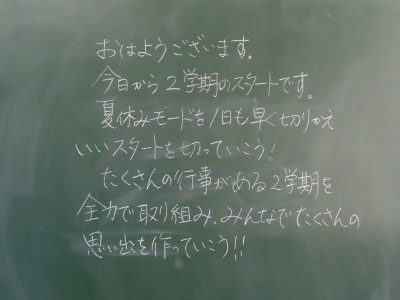 おはようございます。
今日から2学期のスタートです。
夏休みモードを1日も早く切りかえ
いいスタートを切っていこう!
たくさんの行事がある2学期を
全力で取り組み、みんなでたくさんの
思い出を作っていこう!!